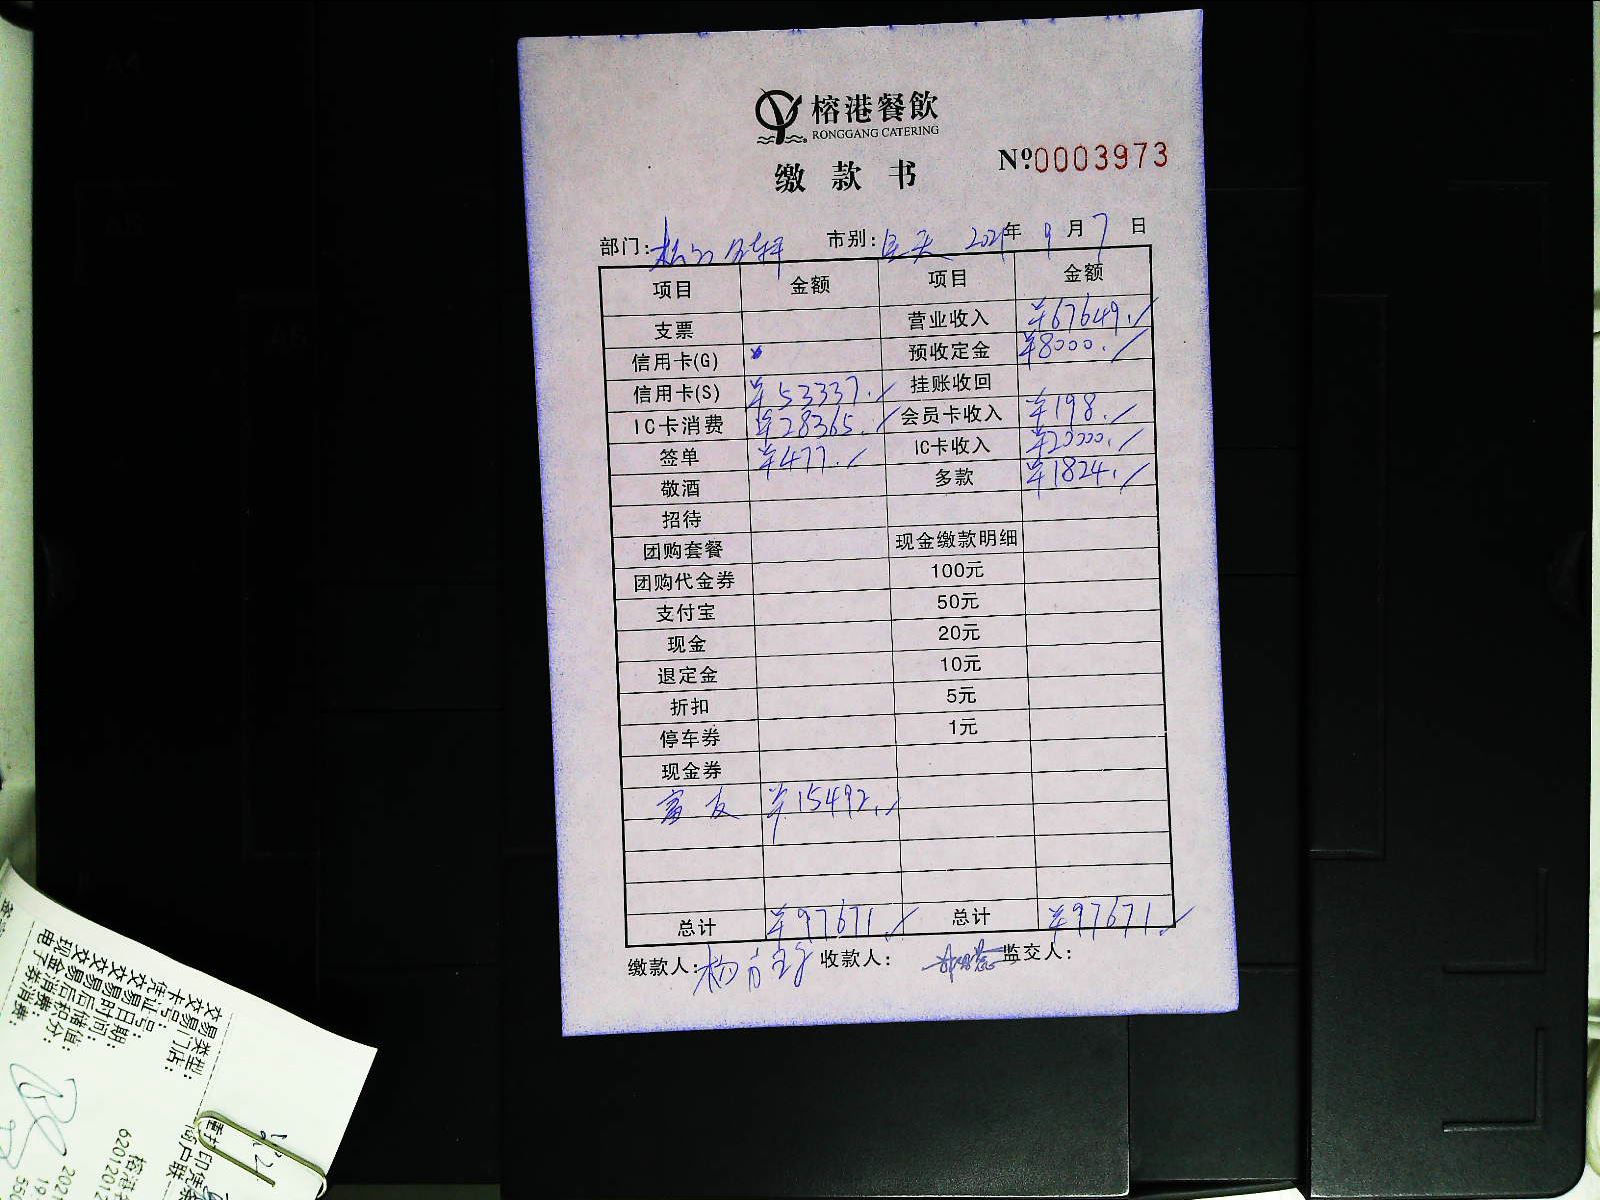 榕港餐飲
RONGGANG CATERING
缴款书
Nº0003973
部门: 市别: 全天 2021年 9月 7日
项目 金额 项目 金额
支票 营业收入 ¥67649.
信用卡(G) 预收定金 ¥8000.
信用卡(S) ¥53337. 挂账收回
IC卡消费 ¥28365. 会员卡收入 ¥198.
签单 ¥477. IC卡收入 ¥20000.
敬酒 多款 ¥1824.
招待
团购套餐 现金缴款明细
团购代金券 100元
支付宝 50元
现金 20元
退定金 10元
折扣 5元
停车券 1元
现金券
富友 ¥15492.
总计 ¥97671. 总计 ¥97671.
缴款人: 杨 收款人: 监交人:
交易类型:
交易门店:
交卡号:
凭证号:
交易日期:
交易时间: